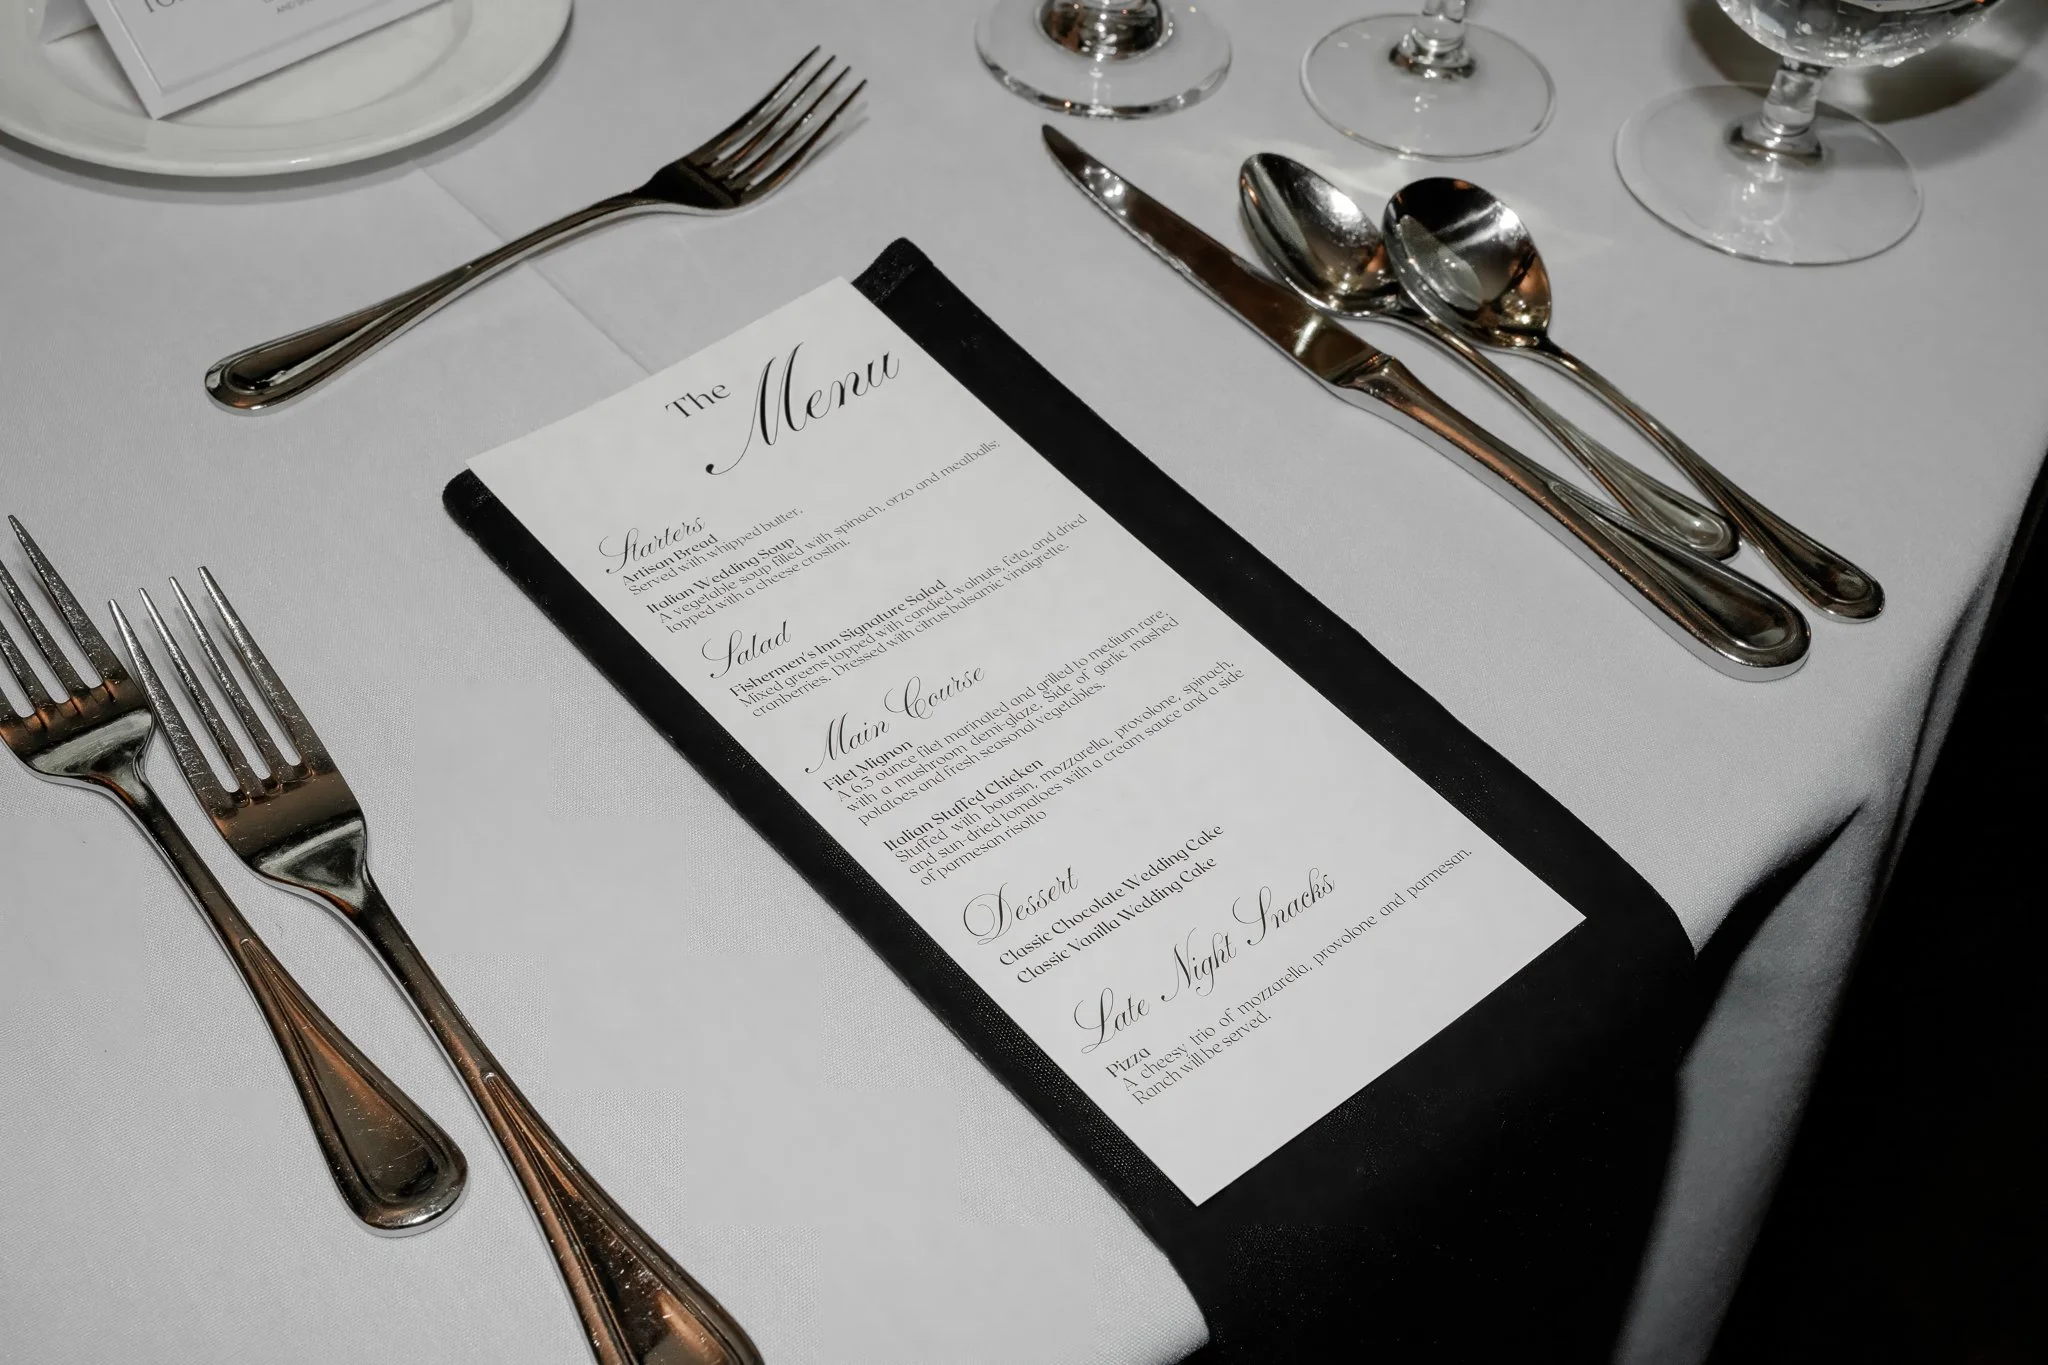 The Menu
Starters
Artisan Bread
Served with whipped butter,
Italian Wedding Soup
A vegetable soup filled with spinach, orzo and meatballs;
topped with a cheese crostini.
Salad
Fishermen's Inn Signature Salad
Mixed greens topped with candied walnuts, feta, and dried
cranberries. Dressed with citrus balsamic vinaigrette.
Main Course
Filet Mignon
A 6.5 ounce filet marinated and grilled to medium rare,
with a mushroom demi-glaze. Side of garlic mashed
potatoes and fresh seasonal vegetables.
Italian Stuffed Chicken
Stuffed with boursin, mozzarella, provolone, spinach,
and sun-dried tomatoes with a cream sauce and a side
of parmesan risotto
Dessert
Classic Chocolate Wedding Cake
Classic Vanilla Wedding Cake
Late Night Snacks
Pizza
A cheesy trio of mozzarella, provolone and parmesan.
Ranch will be served.